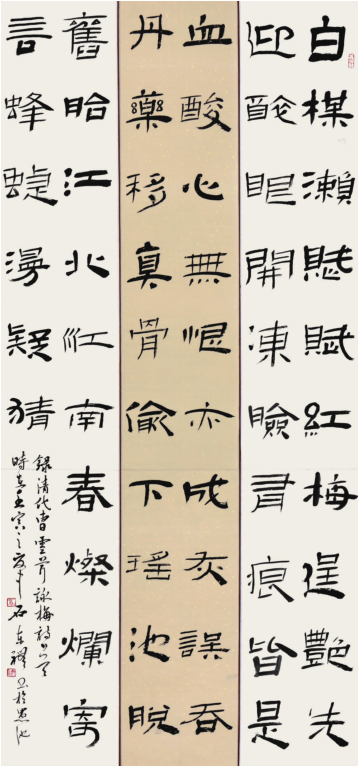 白楳瀨賦賦紅梅逞艷先
迎醉眼開凍臉有痕皆是
血酸心無恨亦成灰誤吞
丹藥移真骨偷下瑤池脫
舊胎江北江南春燦爛寄
言蜂蝶漫疑猜
錄清代曹雪芹詠梅詩一首
時在壬寅之夏石東書於墨池